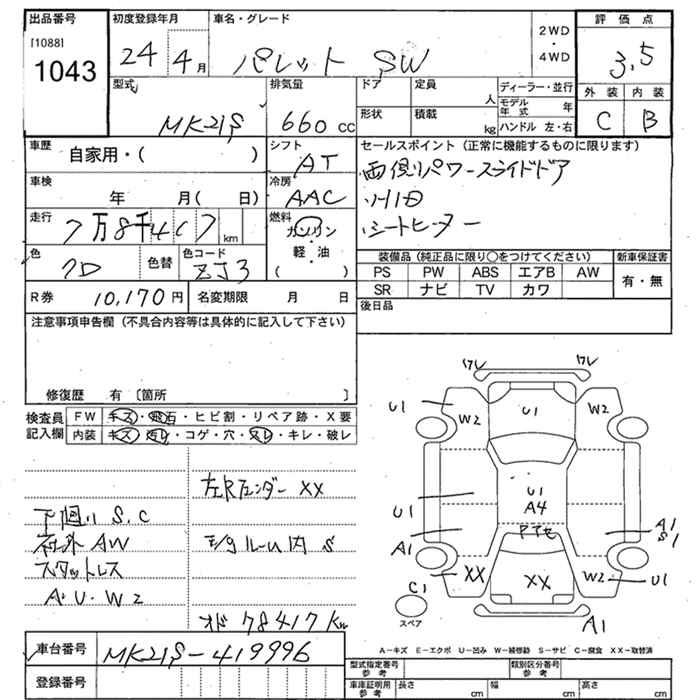 出品番号 初度登録年月 車名・グレード 2WD ・ 4WD 評価点
[1088]
1043 24 4月 パレット SW 3.5
外装 内装
C B
型式 排気量 ドア 定員 人 ディーラー・並行
モデル年式 年
MK21S 660 cc 形状 積載 kg ハンドル 左・右
車歴 自家用・( ) シフト AT セールスポイント (正常に機能するものに限ります)
両側パワースライドドア
車検 年 月( 日) 冷房 AAC
走行 7万8千4 7 km 燃料 ガソリン・軽・油 ( )
シートヒーター
色 色替 色コード ZJ3
装備品 (純正品に限り○をつけてください) 新車保証書
PS PW ABS エアB AW 有・無
SR ナビ TV カワ
R券 10,170円 名変期限 月 日 後日品
注意事項申告欄 (不具合内容等は具体的に記入して下さい)
修復歴 有 〔箇所 〕
検査員記入欄 FW キズ・飛石・ヒビ割・リペア跡・X要
内装 キズ・汚レ・コゲ・穴・スレ・キレ・破レ
左Rフェンダー XX
下回り S.C
社外 AW
スタットレス
A・U・W2
ルーム内 S
オド 78417Km
ワレ ワレ
U1 W2 U1 W2
U1 U1
A4
アイセ
A1 A1
S1
C1 XX XX W2 U1
スペア A1
A−キズ E−エクボ U−凹み W−補修跡 S−サビ C−腐食 XX−取替済
車台番号 MK21S-419996
登録番号
型式指定番号 参考 類別区分番号 参考
車庫証明用 参考 長さ cm 幅 cm 高さ cm